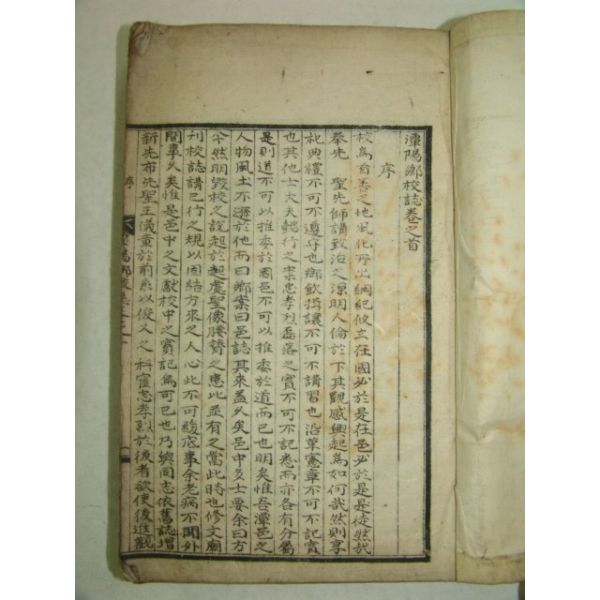 潭陽鄉校誌卷之首
序
校爲首善之地風化所出綱紀攸立在國必於是在邑必於是是徒然哉
奉先聖先師講致治之源明人倫於下其觀感興起爲如何哉然則享
祀典禮不可不遵守也鄉飮揖讓不可不講習也沿革憲章不可不記實
也其他士大夫錫行之案忠孝烈磊落之實不可不記悉而亦各有分屬
是則道不可以推委於國邑不可以推委於道而已也明矣惟吾潭邑之
人物風土不遜於他而曰鄉案曰邑誌其來盖久矣邑中多士要余曰方
今然明毀校之說起於起處聖像腰贅之患此豈有之當此時也修文廟
刊校誌講已行之規以固結方來之人心此不可緩底事余老病不聞外
間事久矣惟是邑中之文獻校中之實記烏可已也乃與同志依舊誌增
新先布先聖王儀章於前系以俊乂之科宦忠孝烈於後者欲使後進觀
序